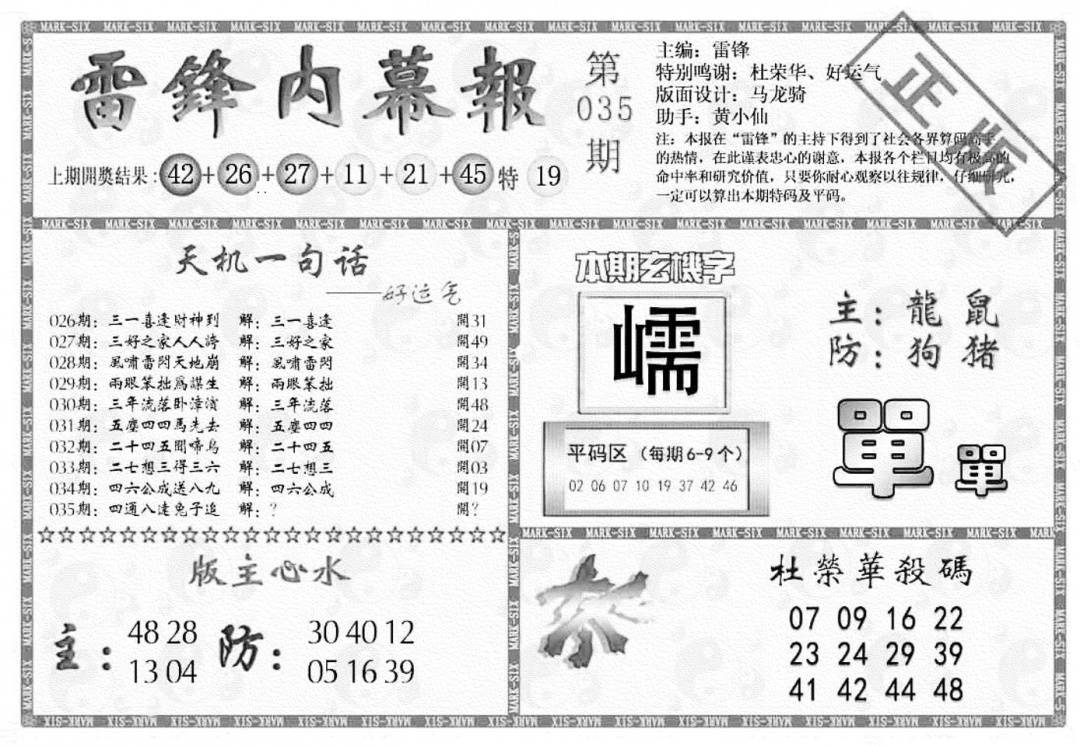 雷鋒内幕報
第
035
期
主编：雷锋
特别鸣谢：杜荣华、好运气
版面设计：马龙骑
助手：黄小仙
注：本报在“雷锋”的主持下得到了社会各界算码高手
的热情，在此谨表忠心的谢意，本报各个栏目均有极高的
命中率和研究价值，只要你耐心观察以往规律，仔细研究，
一定可以算出本期特码及平码。
正版
上期開獎結果：42+26+27+11+21+45特 19
天机一句话
——好运气
026期：三一喜逢财神到 解：三一喜逢 開31
027期：三好之家人人誇 解：三好之家 開49
028期：風嘯雷閃天地崩 解：風嘯雷閃 開34
029期：兩眼笨拙爲謀生 解：兩眼笨拙 開13
030期：三年流落卧漳濱 解：三年流落 開48
031期：五塵四四馬先去 解：五塵四四 開24
032期：二十四五聞啼鳥 解：二十四五 開07
033期：二七想三得三六 解：二七想三 開03
034期：四六公成送八九 解：四六公成 開19
035期：四通八達兔子追 解：？ 開？
☆☆☆☆☆☆☆☆☆☆☆☆☆☆☆☆☆☆☆☆☆☆☆☆
本期玄機字
嶿
平码区（每期6-9个）
02 06 07 10 19 37 42 46
主：龍 鼠
防：狗 猪
單 單
版主心水
主：48 28
13 04
防：30 40 12
05 16 39
杀
杜榮華殺碼
07 09 16 22
23 24 29 39
41 42 44 48